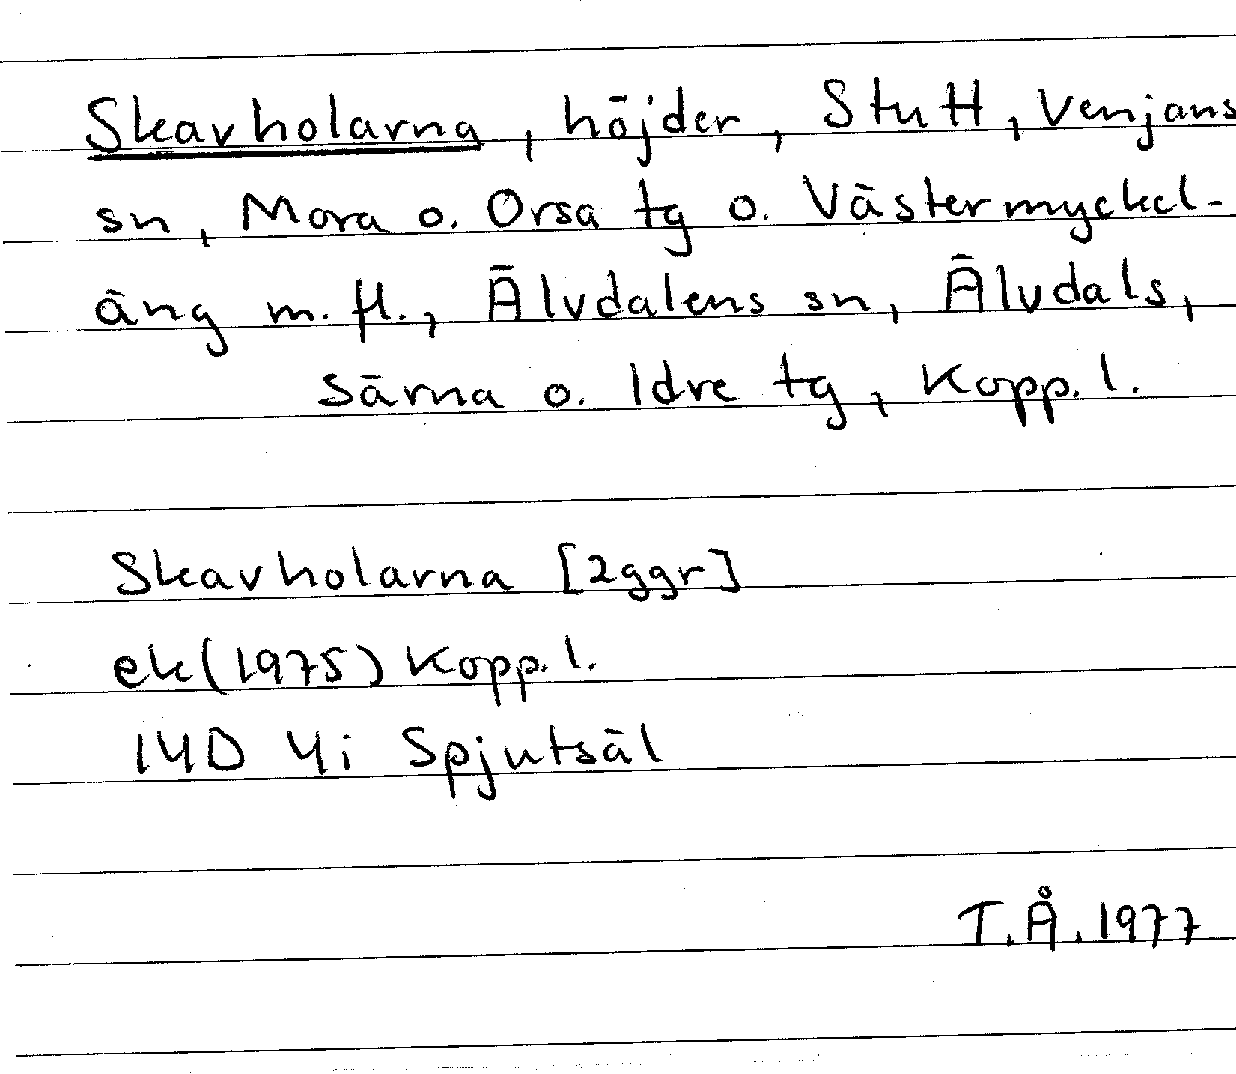 Skavholarna, höjder, Stutt, Venjans
sn, Mora o. Orsa tg o. Västermyckel-
äng m.fl., Älvdalens sn, Älvdals,
Särna o. Idre tg, Kopp. l.
Skavholarna [2ggr]
ek(1975) Kopp. l.
14D 4i Spjutsäl
T.Å. 1977